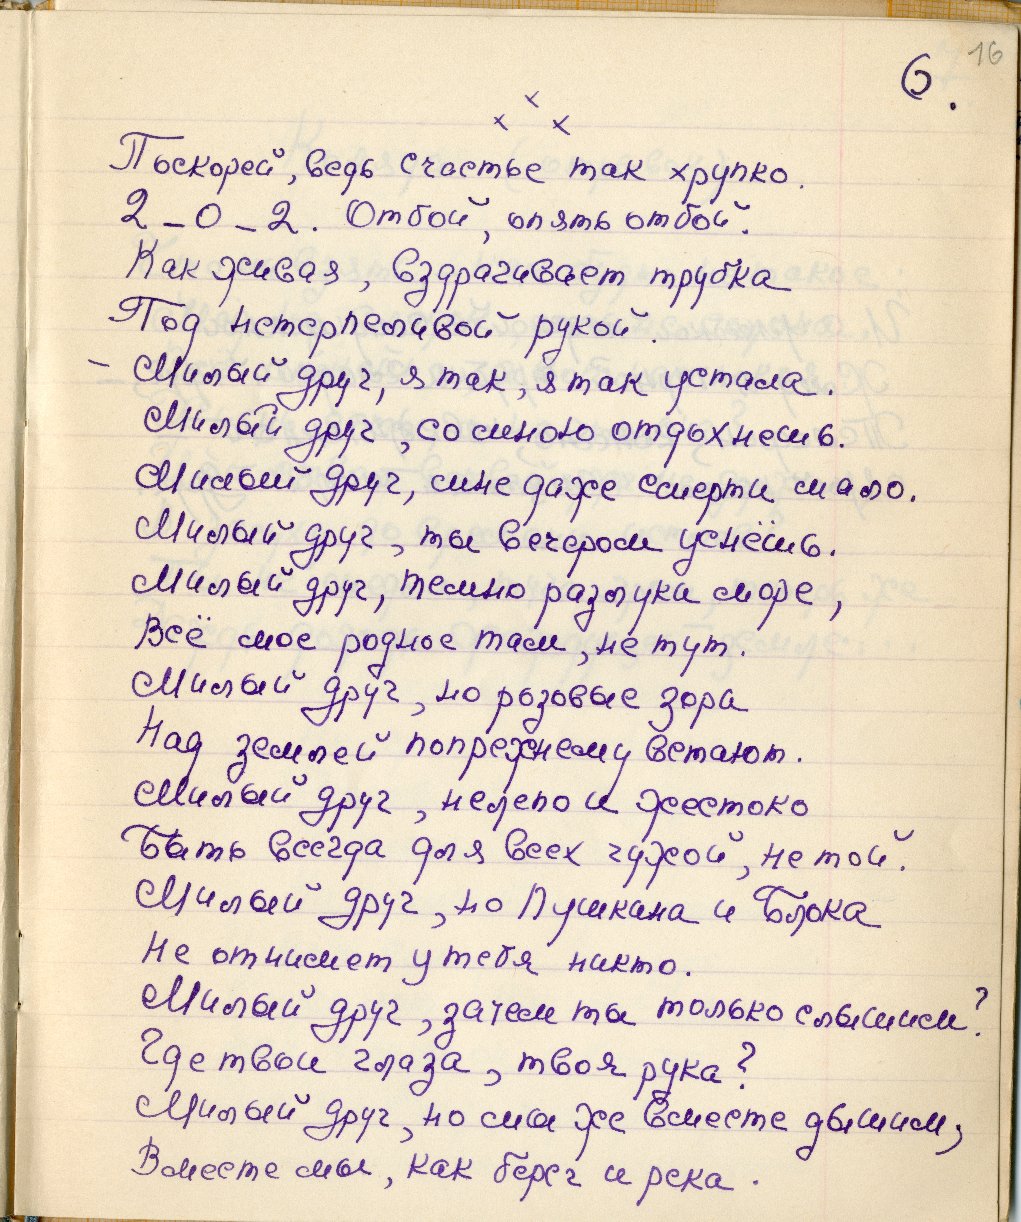 16
6.
x
x x
Поскорей, ведь счастье так хрупко.
2-0-2. Отбой, опять отбой.
Как живая, вздрагивает трубка
Под нетерпеливой рукой.
- Милый друг, я так, я так устала.
Милый друг, со мною отдохнешь.
Милый друг, мне даже смерти мало.
Милый друг, ты вечером уснёшь.
Милый друг, темно разлуки море,
Всё мое родное там, не тут.
Милый друг, но розовые зори
Над землей попрежнему встают.
Милый друг, нелепо и жестоко
Быть всегда для всех чужой, не той.
Милый друг, но Пушкина и Блока
Не отнимет у тебя никто.
Милый друг, зачем ты только слышим?
Где твои глаза, твоя рука?
Милый друг, но мы же вместе дышим,
Вместе мы, как берег и река.